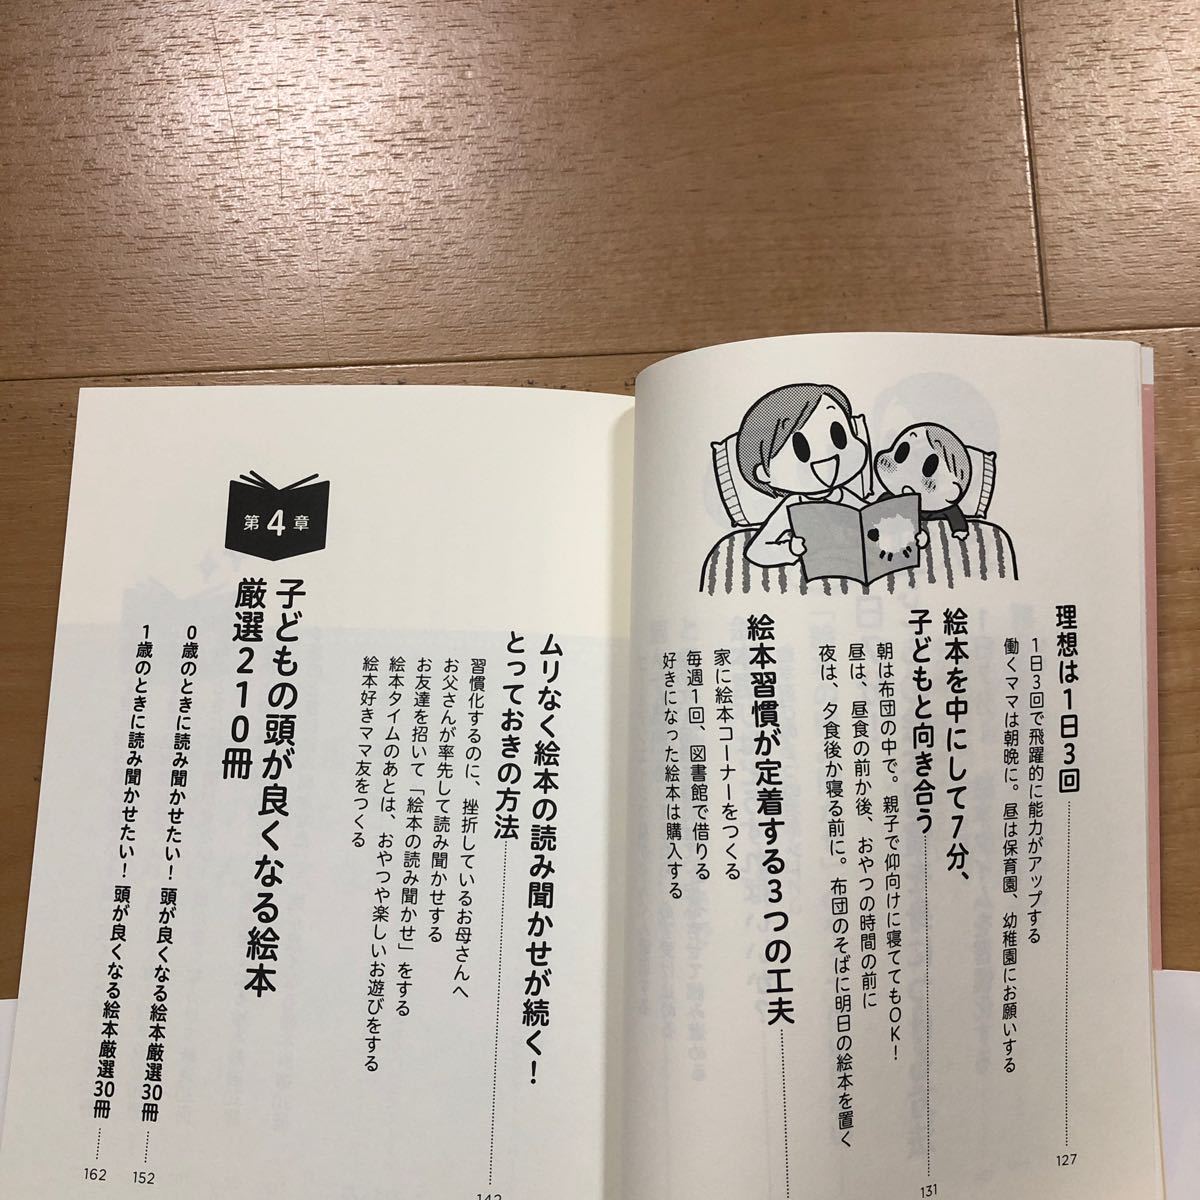 理想は1日3回
127
1日3回で飛躍的に能力がアップする
働くママは朝晩に。昼は保育園、幼稚園にお願いする
絵本を中にして7分、
子どもと向き合う
131
朝は布団の中で。親子で仰向けに寝ててもOK!
昼は、昼食の前か後、おやつの時間の前に
夜は、夕食後か寝る前に。布団のそばに明日の絵本を置く
絵本習慣が定着する3つの工夫
家に絵本コーナーをつくる
毎週1回、図書館で借りる
好きになった絵本は購入する
ムリなく絵本の読み聞かせが続く!
とっておきの方法
142
習慣化するのに、挫折しているお母さんへ
お父さんが率先して読み聞かせする
お友達を招いて「絵本の読み聞かせ」をする
絵本タイムのあとは、おやつや楽しいお遊びをする
絵本好きママ友をつくる
第4章
子どもの頭が良くなる絵本
厳選210冊
0歳のときに読み聞かせたい! 頭が良くなる絵本厳選30冊
152
1歳のときに読み聞かせたい! 頭が良くなる絵本厳選30冊
162